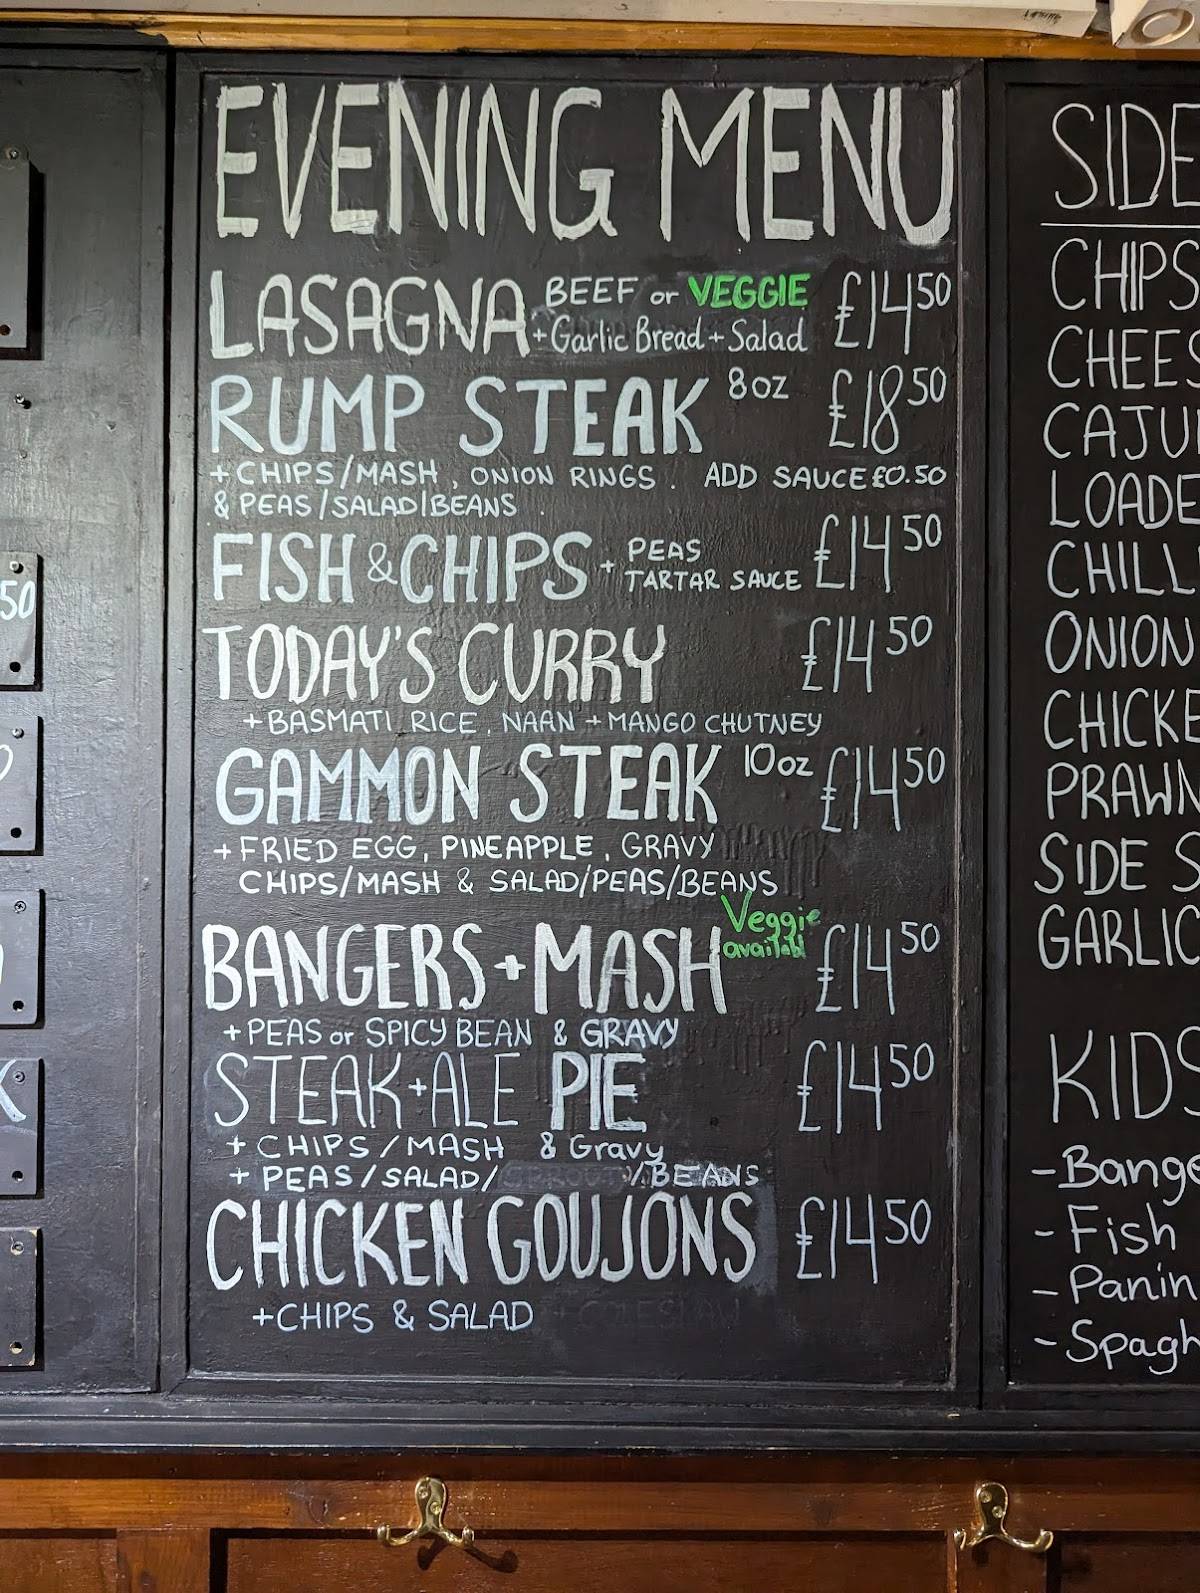 EVENING MENU
LASAGNA BEEF or VEGGIE £14.50
+ Garlic Bread + Salad
RUMP STEAK 8oz £18.50
+ CHIPS/MASH, ONION RINGS. ADD SAUCE £0.50
& PEAS/SALAD/BEANS
FISH & CHIPS + PEAS £14.50
TARTAR SAUCE
TODAY'S CURRY £14.50
+ BASMATI RICE, NAAN + MANGO CHUTNEY
GAMMON STEAK 10oz £14.50
+ FRIED EGG, PINEAPPLE, GRAVY
CHIPS/MASH & SALAD/PEAS/BEANS
BANGERS + MASH Veggie £14.50
available
+ PEAS or SPICY BEAN & GRAVY
STEAK + ALE PIE £14.50
+ CHIPS/MASH & Gravy
+ PEAS/SALAD/ /BEANS
CHICKEN GOUJONS £14.50
+ CHIPS & SALAD
SIDE
CHIPS
CHEES
CAJU
LOADE
CHILL
ONION
CHICKE
PRAWN
SIDE S
GARLIC
KIDS
- Bange
- Fish
- Panin
- Spagh
50